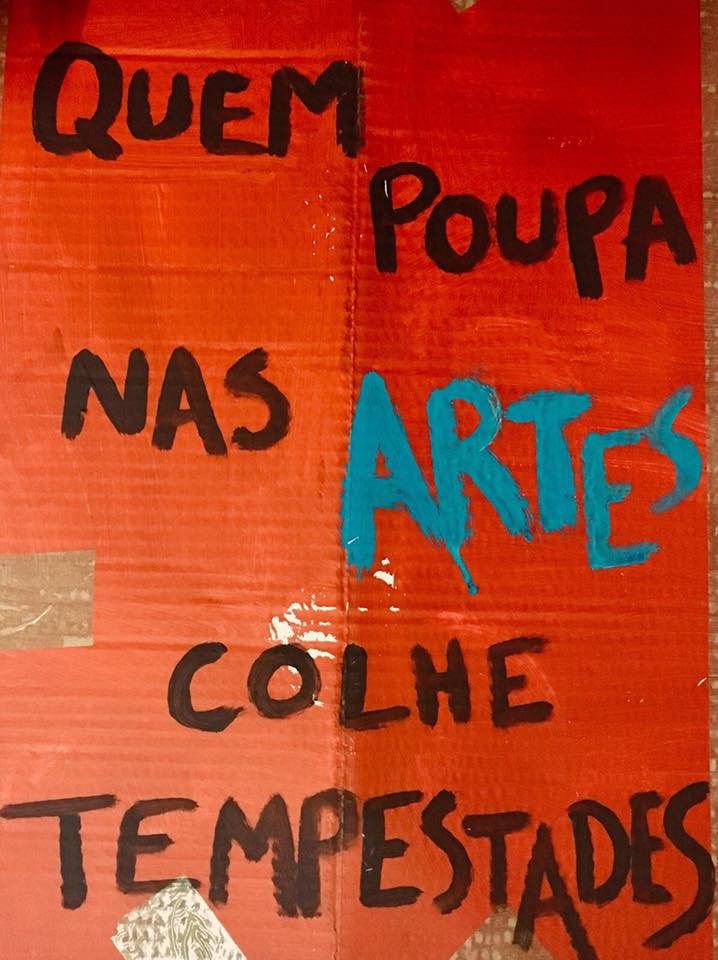 QUEM
POUPA
NAS ARTES
COLHE
TEMPESTADES